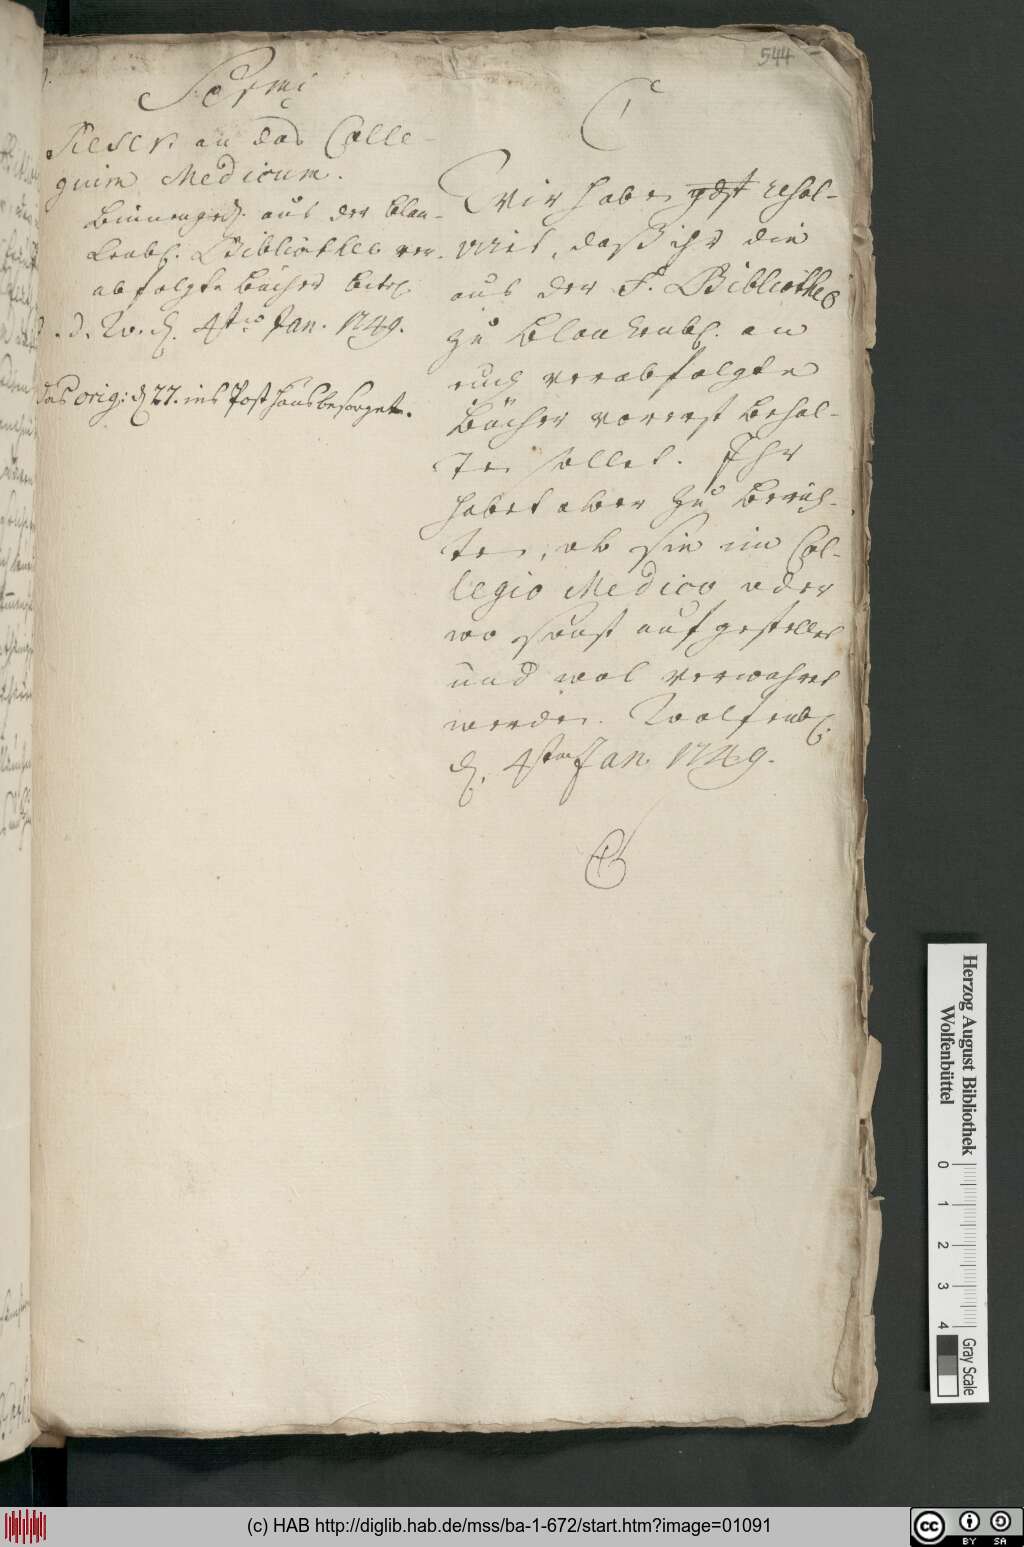 544
Sermi
Rescr. an das Colle-
gium Medicum.
aus der Blan-
kenb. Bibliothec ver-
abfolgte Bücher betr.
d. d. W. d. 4ten Jan. 1749.
das orig: d 27. ins Posthaus besorget.
Wir haben gdst resol-
viret, daß ihr die
aus der F. Bibliothec
zu Blankenb. an
euch verabfolgte
Bücher vorerst behal-
ten sollet. Ihr
habet aber zu berich-
ten, ob sie im Col-
legio Medico oder
wo sonst aufgestellet
und wol verwahret
werden. Wolfenb.
d. 4ten Jan. 1749.
Herzog August Bibliothek
Wolfenbüttel
0 1 2 3 4
Gray Scale
(c) HAB http://diglib.hab.de/mss/ba-1-672/start.htm?image=01091
cc BY SA